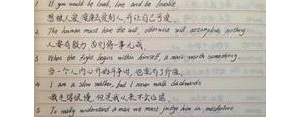 1. If you would be loved, love and be lovable
想被人爱,就要去爱别人,并让自己可爱.
2. The human must have the will, otherwise will accomplish nothing
人要有毅力,否则将一事无成.
3. When the fight begins within himself, a man's worth something.
当一个人内心开始斗争时,他就有了价值.
4. I am a slow walker, but I never walk backwards
我走得很慢,但是我从来不会后退.
5. To really understand a man we must judge him in misfortune